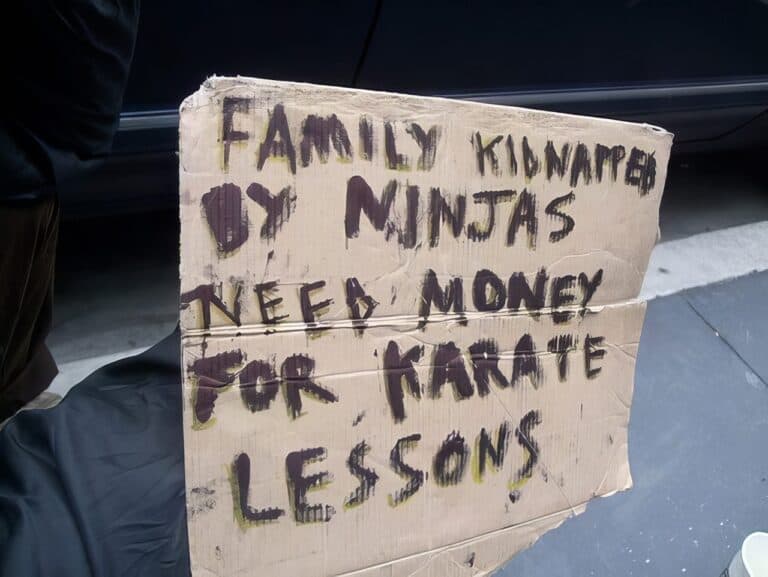 FAMILY KIDNAPPED
BY NINJAS
NEED MONEY
FOR KARATE
LESSONS